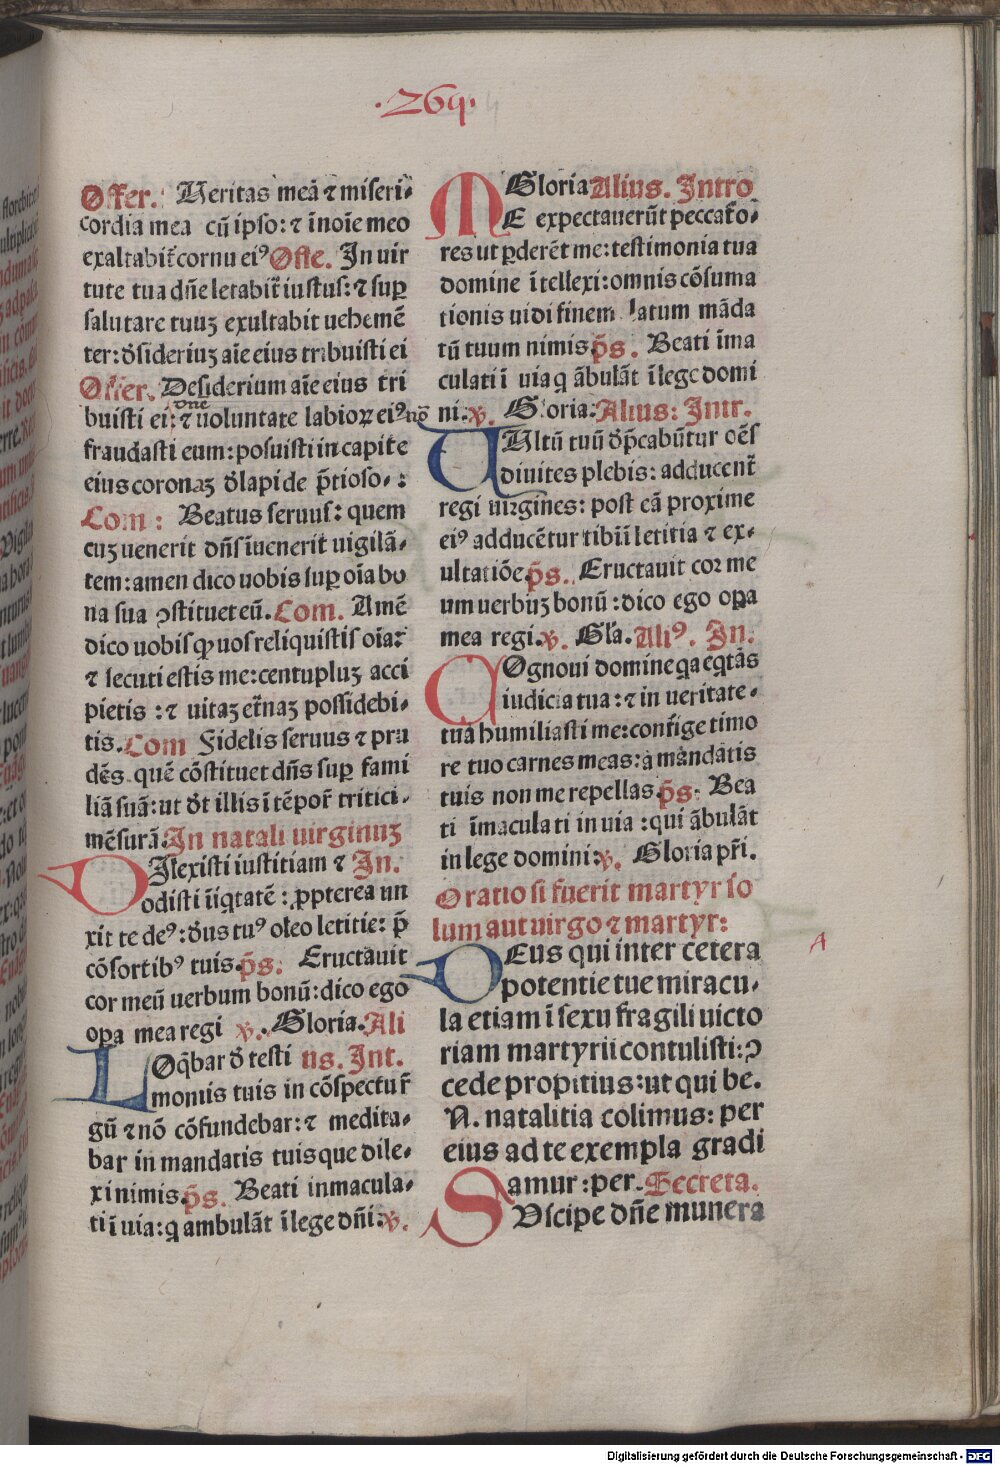 ·264·
Offer. Veritas meā ⁊ miseri-
cordia mea cū ipso: ⁊ ī noīe meo
exaltabit̄ cornu eiꝰ Offe. In uir
tute tua dn̄e letabit̄ iustus: ⁊ suꝑ
salutare tuuꝫ exultabit uehemē
ter: d̄sideriuꝫ aīe eius tribuisti ei
Offer. Desiderium aīe eius tri
buisti ei: dn̄e ⁊ uoluntate labioꝝ eiꝰ nō
fraudasti eum: posuisti in capite
eius coronaꝫ d̄ lapide p̄tioso.:
Com: Beatus seruus: quem
cuꝫ uenerit dn̄s īuenerit uigilā-
tem: amen dico uobis suꝑ oīa bo
na sua ꝯstituet eū. Com. Amē
dico uobis ꝙ uos reliquistis oīa:
⁊ secuti estis me: centupluꝫ acci
pietis: ⁊ uitaꝫ et̄naꝫ possidebi-
tis. Com Fidelis seruus ⁊ pru
dēs quē cōstituet dn̄s suꝑ fami
liā suā: ut d̄t illis ī tēpor̄ tritici
mēsurā. In natali uirginuꝫ
Dilexisti iustitiam ⁊ In.
odisti īiq̄tatē: ꝓpterea un
xit te deꝰ: d̄us tuꝰ oleo letitie: p̄
cōsortibꝰ tuis. p̄s. Eructauit
cor meū uerbum bonū: dico ego
oꝑa mea regi ℣. Gloria. Ali
Loq̄bar d̄ testi us. Int.
moniis tuis in cōspectu r̄
gū ⁊ nō cōfundebar: ⁊ medita-
bar in mandatis tuis que dile-
xi nimis. p̄s. Beati inmacula-
ti ī uia: ꝗ ambulāt ī lege dn̄i: ℣.
Gloria Alius. Intro
ME expectauerūt peccato-
res ut ꝑderēt me: testimonia tua
domine ītellexi: omnis cōsuma
tionis uidi finem latum māda
tū tuum nimis p̄s. Beati īma
culati ī uia ꝗ ābulāt ī lege domi
ni. ℣. Gloria: Alius: Intr.
Vultū tuū d̄p̄cabūtur oēs
diuites plebis: adducent̄
regi uirgines: post eā proxime
eiꝰ adducētur tibi ī letitia ⁊ ex-
ultatiōe p̄s. Eructauit cor me
um uerbuꝫ bonū: dico ego oꝑa
mea regi. ℣. Gl̄a. Aliꝰ. In.
Cognoui domine ꝗa eq̄tās
iudicia tua: ⁊ in ueritate-
tua humiliasti me: confige timo
re tuo carnes meas: a mandatis
tuis non me repellas. p̄s. Bea
ti īmaculati in uia: qui ābulāt
in lege domini: ℣. Gloria pr̄i.
Oratio si fuerit martyr so
lum aut uirgo ⁊ martyr:
DEus qui inter cetera
potentie tue miracu-
la etiam ī sexu fragili uicto
riam martyrii contulisti: ꝯ
cede propitius: ut qui be.
N. natalitia colimus: per
eius ad te exempla gradi
amur: per. Secreta.
SUscipe dn̄e munera
A
Digitalisierung gefördert durch die Deutsche Forschungsgemeinschaft - DFG